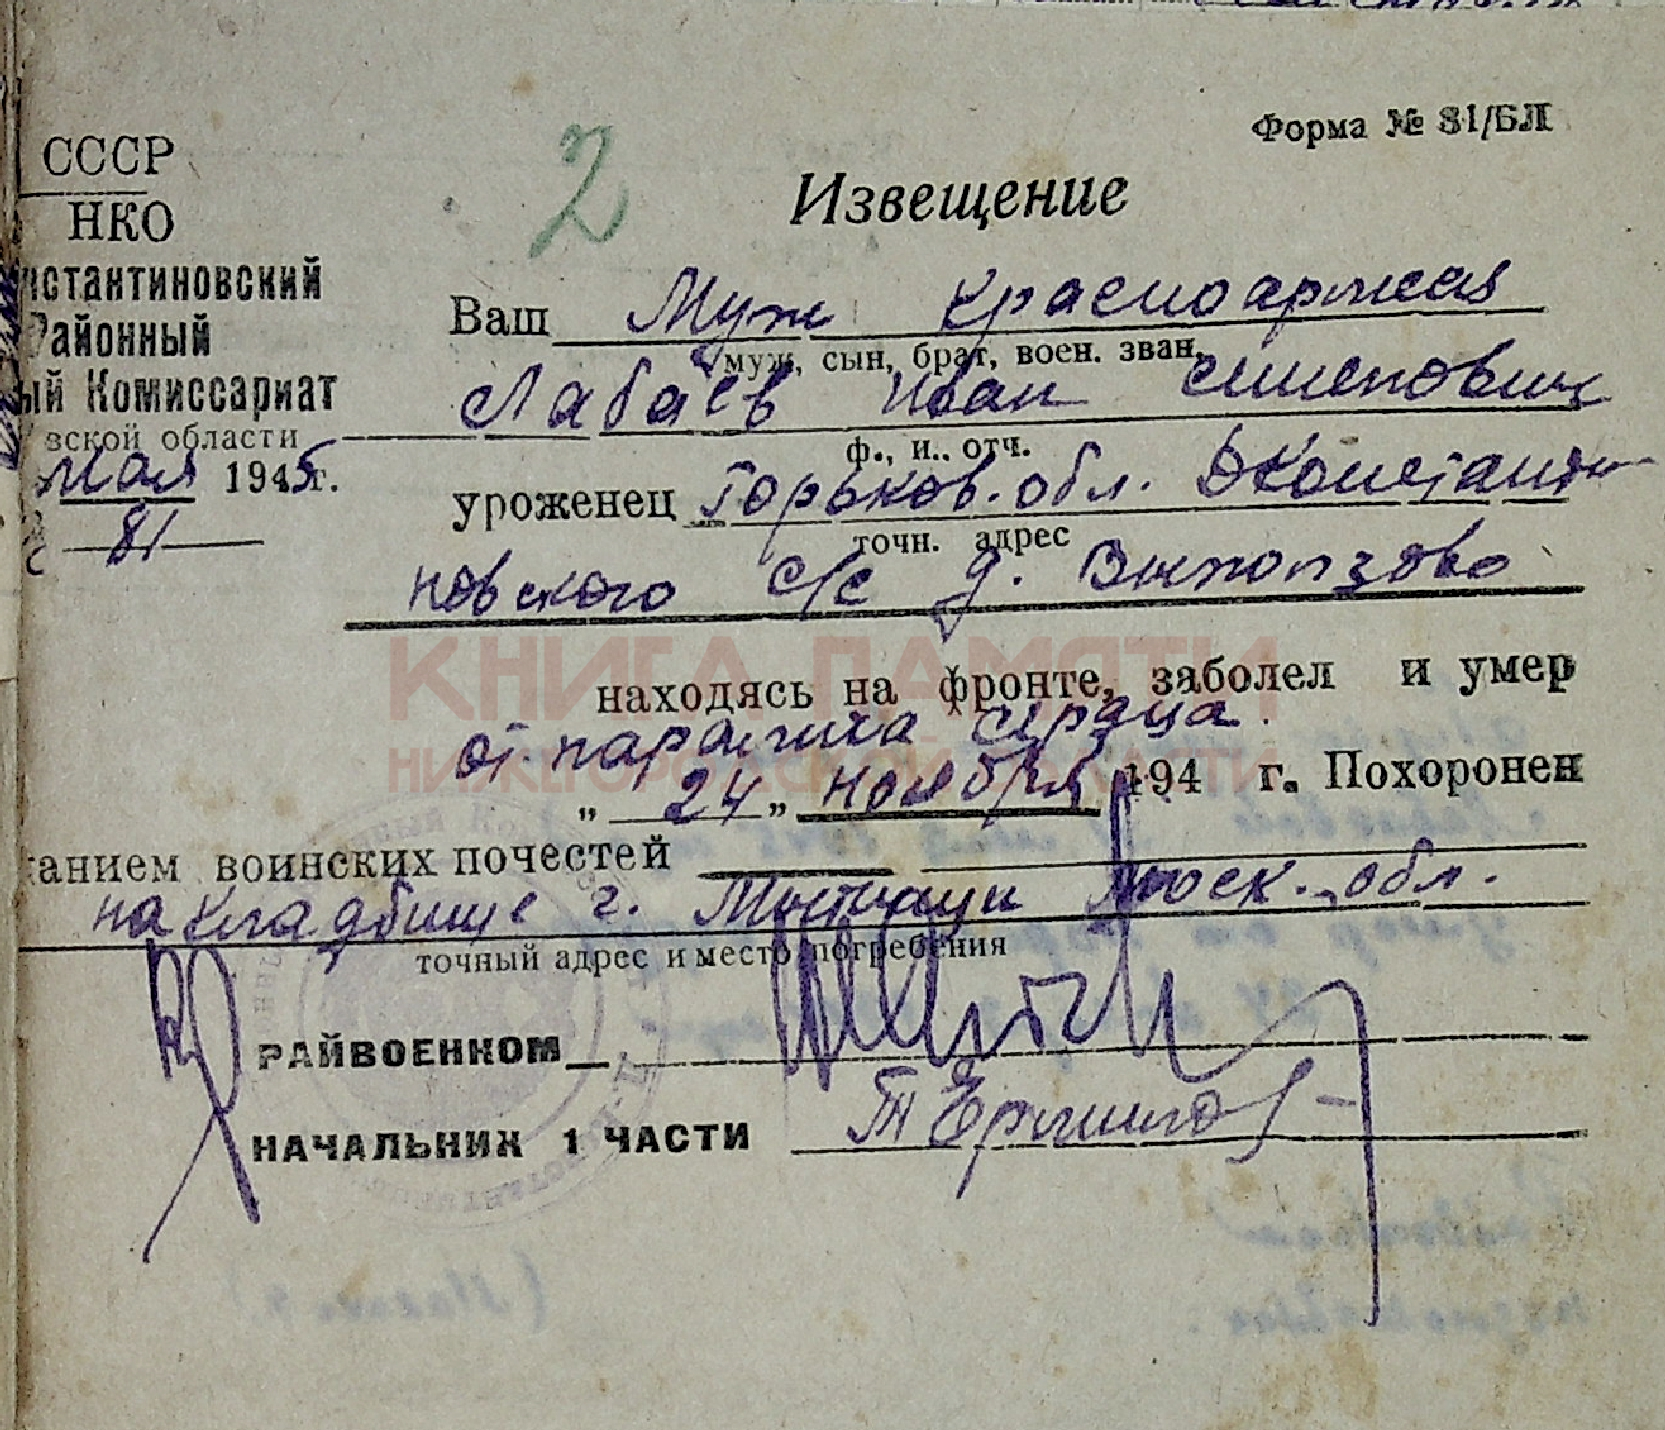 Форма № 81/БЛ
2
Извещение
СССР
НКО
нстантиновский
Районный
ый Комиссариат
вской области
мая 1945г.
81
Ваш Муж красноармеец
муж, сын, брат, воен. зван.
Лабаев Иван Семенович
ф., и.. отч.
уроженец Горьков. обл. Константи
точн. адрес
новского с/с д.
КНИГА ПАМЯТИ
НИЖЕГОРОДСКОЙ ОБЛАСТИ
находясь на фронте, заболел и умер
от паралича сердца.
„ 24 „ ноября 194 г. Похоронен
танием воинских почестей
на кладбище г. Мытищи Моск. обл.
точный адрес и место погребения
РАЙВОЕНКОМ
НАЧАЛЬНИК 1 ЧАСТИ